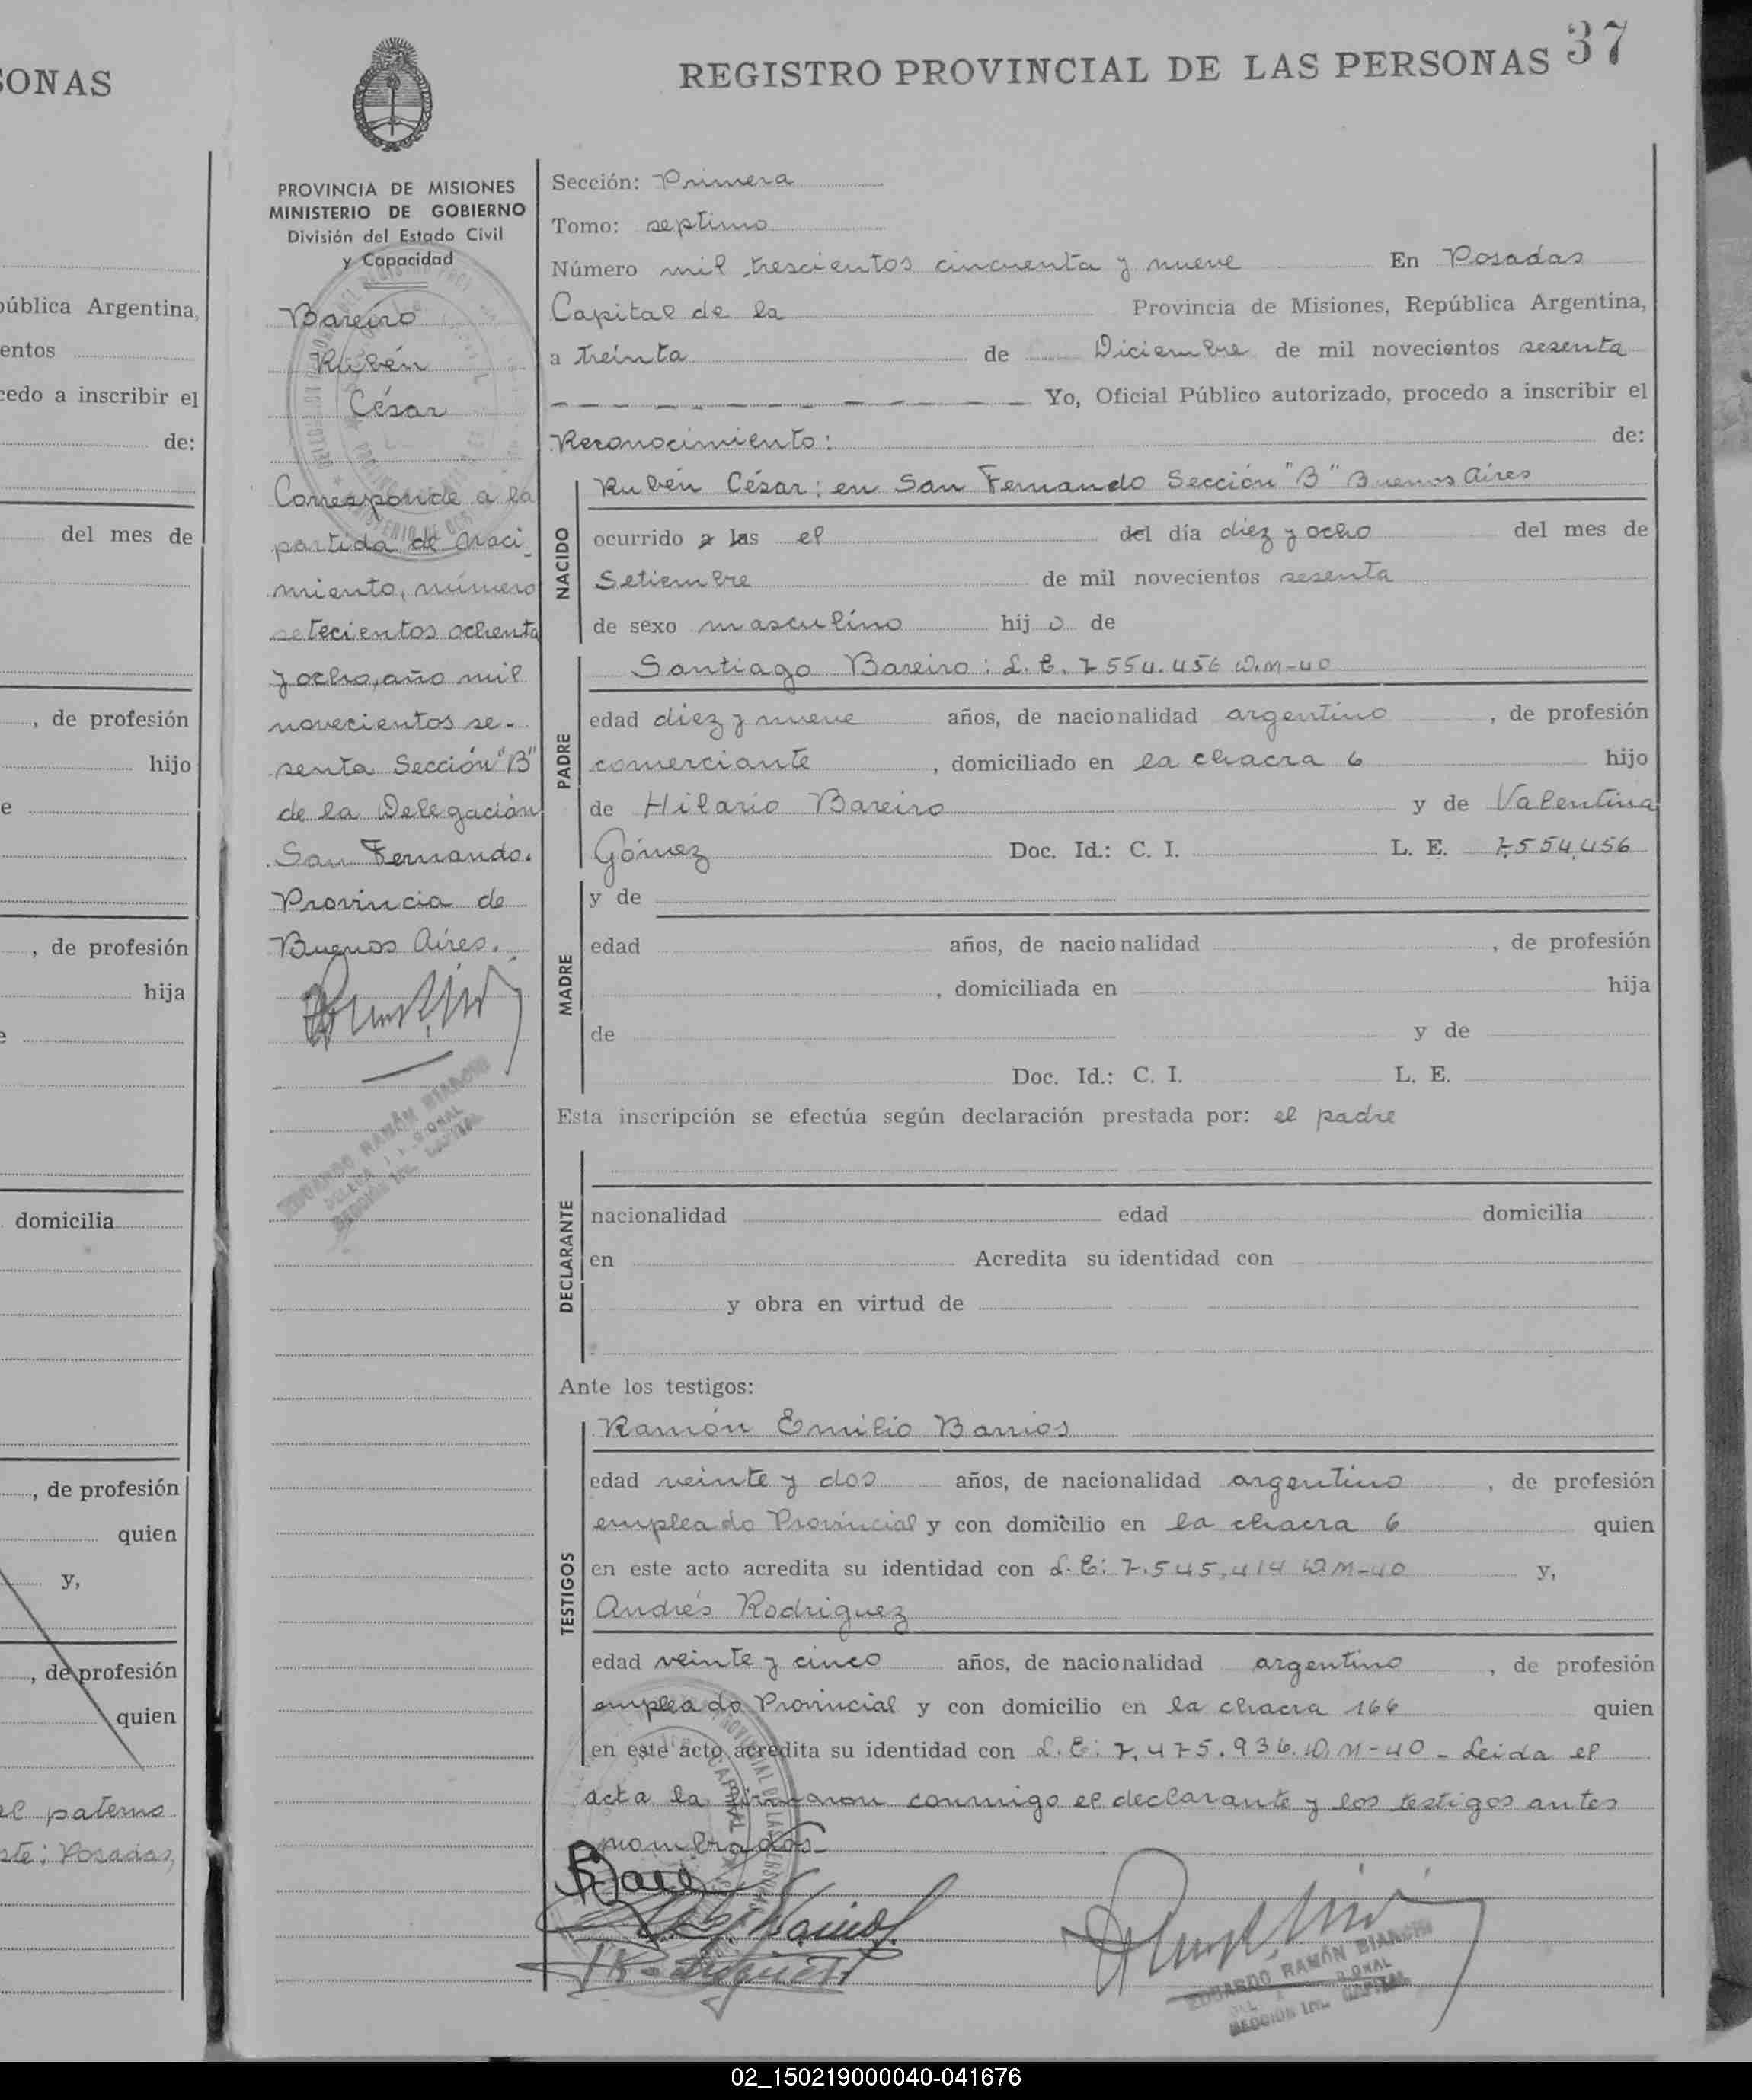 SONAS
pública Argentina,
entos
cedo a inscribir el
de:
del mes de
, de profesión
hijo
e
, de profesión
hija
e
domicilia
, de profesión
quien
y,
, de profesión
quien
el paterno
ste; Posadas,
37
REGISTRO PROVINCIAL DE LAS PERSONAS
PROVINCIA DE MISIONES
MINISTERIO DE GOBIERNO
División del Estado Civil
y Capacidad
Bareiro
Rubén
César
Corresponde a la
partida de Naci-
miento, número
setecientos ochenta
y ocho, año mil
novecientos se-
senta Sección "B"
de la Delegación
San Fernando.
Provincia de
Buenos Aires.
EDUARDO RAMÓN BIANCHI
Sección: Primera
Tomo: septimo
Número mil trescientos cincuenta y nueve En Posadas
Capital de la Provincia de Misiones, República Argentina,
a treinta de Diciembre de mil novecientos sesenta
Yo, Oficial Público autorizado, procedo a inscribir el
Reconocimiento: de:
NACIDO
Rubén César: en San Fernando Sección "B" Buenos Aires
ocurrido a las el del día diez y ocho del mes de
Setiembre de mil novecientos sesenta
de sexo masculino hijo de
PADRE
Santiago Bareiro: L. E. 7554.456 D.M-40
edad diez y nueve años, de nacionalidad argentino, de profesión
comerciante, domiciliado en la chacra 6 hijo
de Hilario Bareiro y de Valentina
Gómez Doc. Id.: C. I. L. E. 7,554,456
MADRE
y de
edad años, de nacionalidad , de profesión
, domiciliada en hija
de y de
Doc. Id.: C. I. L. E.
Esta inscripción se efectúa según declaración prestada por: el padre
DECLARANTE
nacionalidad edad domicilia
en Acredita su identidad con
y obra en virtud de
Ante los testigos:
TESTIGOS
Ramón Emilio Barrios
edad veinte y dos años, de nacionalidad argentino, de profesión
empleado Provincial y con domicilio en la chacra 6 quien
en este acto acredita su identidad con L. E: 7.545,414 D.M-40 y,
Andrés Rodriguez
edad veinte y cinco años, de nacionalidad argentino, de profesión
empleado Provincial y con domicilio en la chacra 166 quien
en este acto acredita su identidad con L. E: 7,475.936. D.M-40 - Leida el
acta la firmaron conmigo el declarante y los testigos antes
nombrados-
EDUARDO RAMÓN BIANCHI
02_150219000040-041676